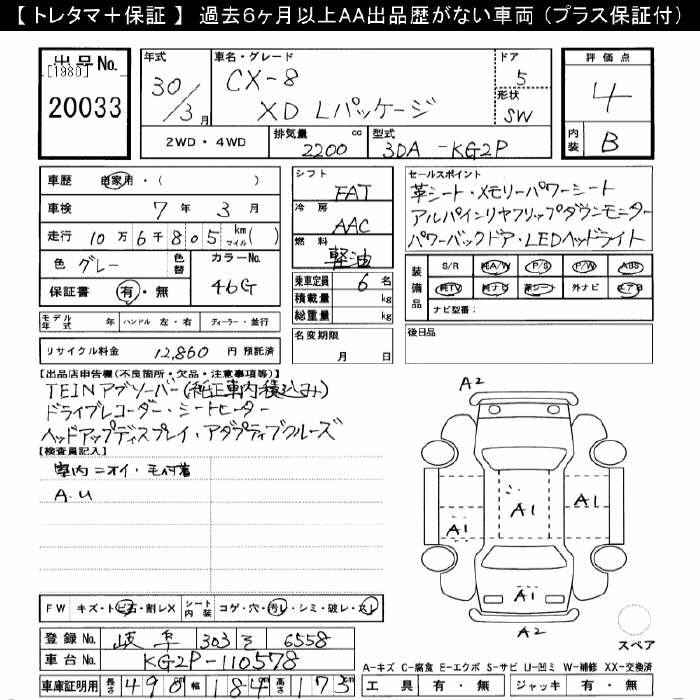 【 トレタマ＋保証 】 過去6ヶ月以上AA出品歴がない車両 (プラス保証付)
出品No.
[1980]
20033
年式
30/3月
車名・グレード
CX-8
XD Lパッケージ
ドア
5
形状
SW
2WD・4WD
排気量 2200 cc
型式 3DA-KG2P
評価点
4
内装 B
車歴 自家用・( )
車検 7年 3月
走行 10万6千805 km マイル( )
色 グレー 色替 カラーNo. 46G
保証書 有・無
モデル年式 年 ハンドル 左・右 ディーラー・並行
リサイクル料金 12,860 円 預託済
シフト FAT
冷房 AAC
燃料 軽油
乗車定員 6 名
積載量 kg
総重量 kg
名変期限
月 日
セールスポイント
革シート・メモリーパワーシート
アルパインリヤフリップダウンモニター
パワーバックドア・LEDヘッドライト
装備品
S/R 純A/W P/S P/W ABS
純TV 純ナビ 革シート 外ナビ エアB
ナビ型番：
後日品
【出品店申告欄(不良箇所・欠品・注意事項等)】
TEINアブソーバー(純正車内積込み)
ドライブレコーダー・シートヒーター
ヘッドアップディスプレイ・アダプティブクルーズ
【検査員記入】
室内ニオイ・毛付着
A.U
A2
A1
A1
A1
A1
A2
スペア
FW キズ・トビ石・割レX シート内装 コゲ・穴・汚レ・シミ・破レ・スレ
登録No. 岐阜 303 そ 6558
車台No. KG2P-110578
車庫証明用 長さ 490cm 幅 184cm 高さ 173cm
A-キズ C-腐食 E-エクボ S-サビ U-凹ミ W-補修 XX-交換済
工具 有・無 ジャッキ 有・無